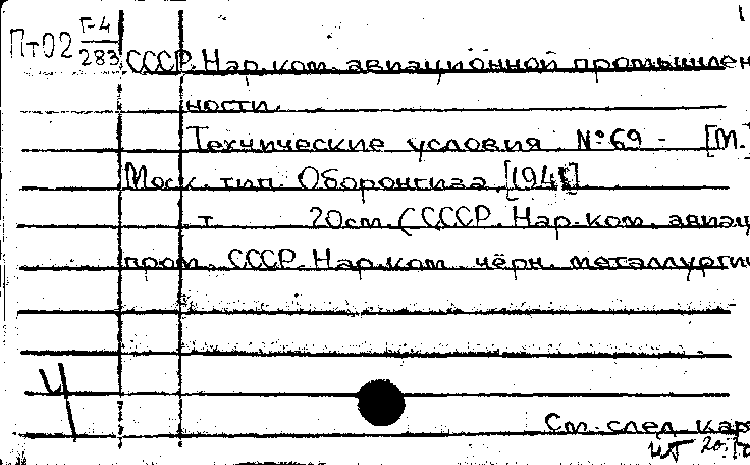 Пт02 Г-4
283
СССР. Нар. ком. авиационной промышлен
ности.
Технические условия №69 - [М.
Моск. тип. Оборонгиза,
т. 20см. (СССР. Нар. ком. авиац
пром. СССР. Нар. ком. чёрн. металлургии
4
См. след. кар